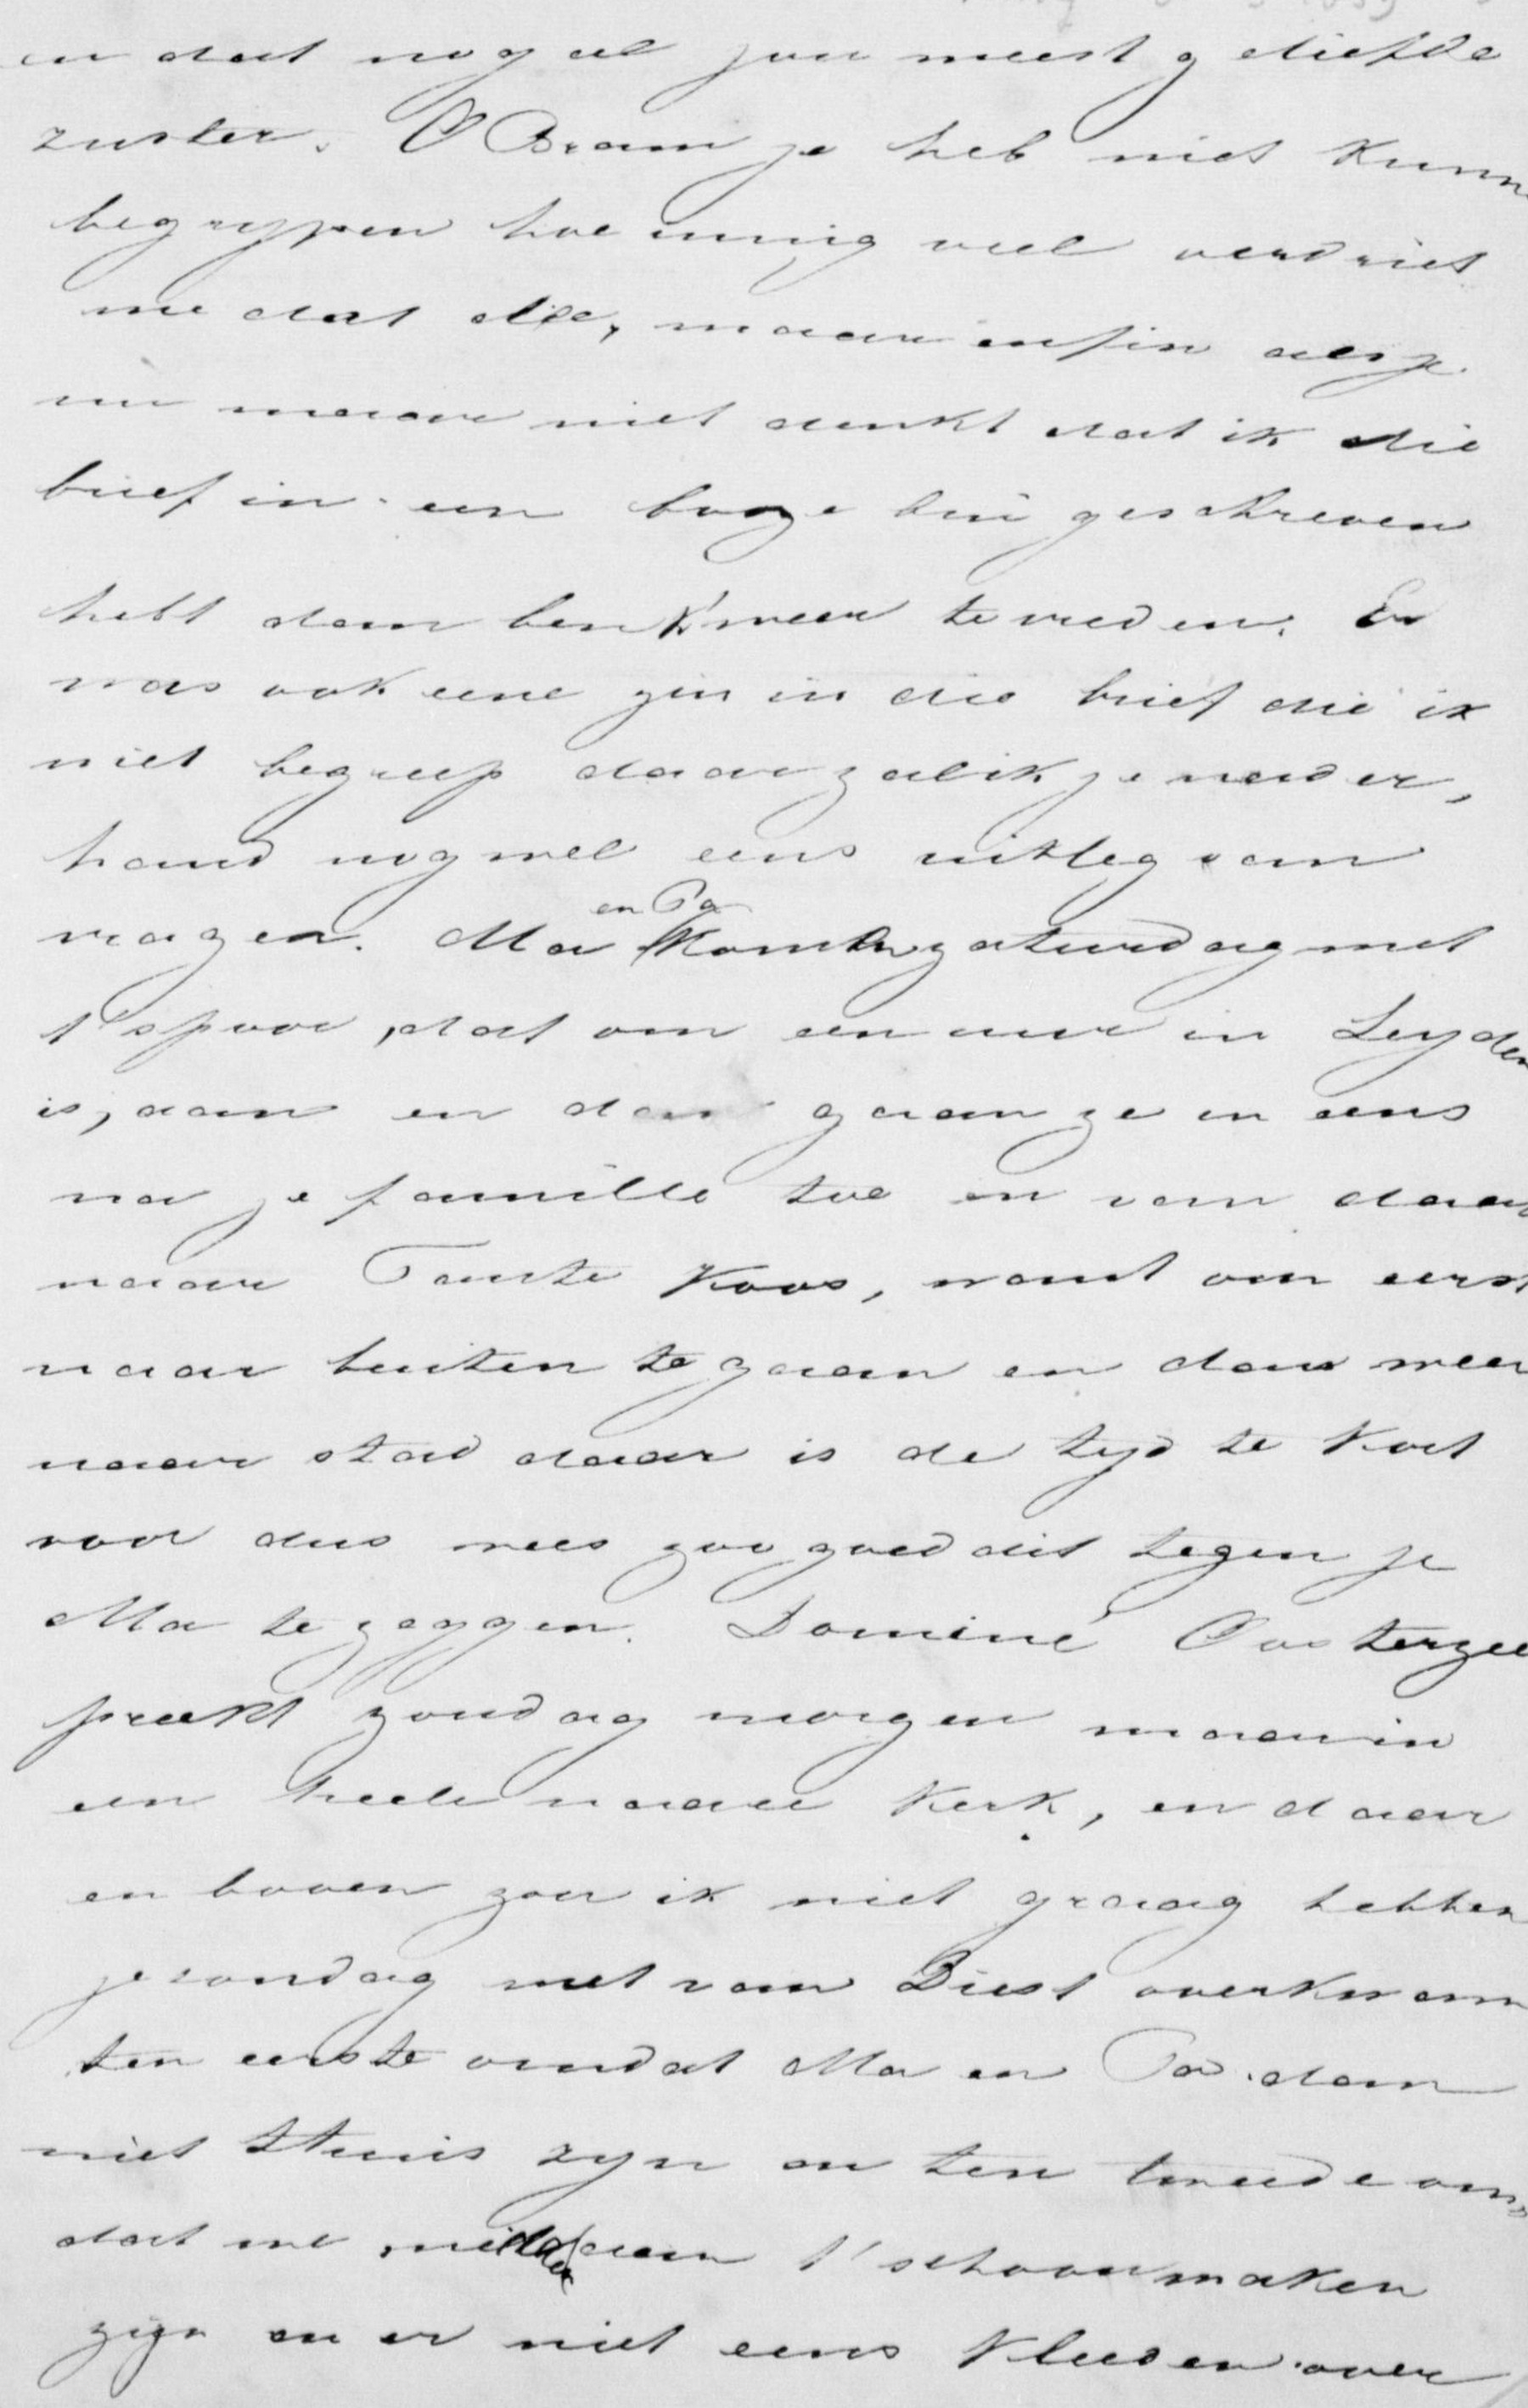 en dat nog al jou meest geliefde
zuster. O Bram je heb niet kunn
begrypen hoe innig veel verdriet
me dat dee, maar enfin als je
nu maar niet denkt dat ik die
brief in een booze bui geschreven
hebt dan ben k' weer te vreden. Er
was ook eene zin in die brief die ik
niet begreep daar zal ik je nader,
hand nog wel eens uitleg van
vragen. Ma en Pa komen zaturdag met
t' spoor, dat om een uur in Leyden
is, aan en dan gaan ze in eens
na je famille toe en van daar
naar Tante Koos, want om eerst
naar buiten te gaan en dan weer
naar stad daar is de tyd te kort
voor dus wees zoo goed dit tegen je
Ma te zeggen. Dominé Oosterzee
preekt zondag morgen maar in
een heele naare kerk, en daar
en boven zou ik niet graag hebben
je zondag met van Diest overkwam
ten eerste omdat Ma en Pa dan
niet thuis zyn en ten tweede om,
dat we midden aan t' schoonmaken
zijn en er niet eens kleeden over